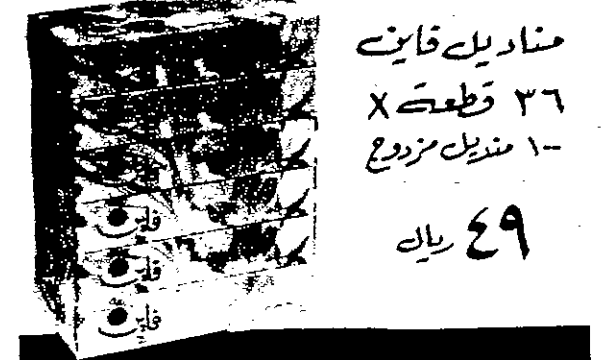 مناديل فاين
٣٦ قطعة X
١٠٠ منديل مزدوج
٤٩ ريال
فاين
فاين
فاين